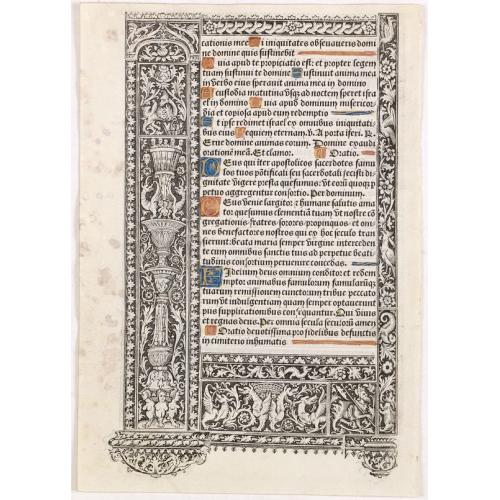 cationis mee Si iniquitates obseruaueris domi
ne domine quis sustinebit
Quia apud te propiciatio est: et propter legem
tuam sustinui te domine Sustinuit anima mea
in verbo eius sperauit anima mea in domino
A custodia matutina vsq; ad noctem speret isra
el in domino Quia apud dominum misericor
dia et copiosa apud eum redemptio
Et ipse redimet israel ex omnibus iniquitati
bus eius Requiem eternam. V. A porta iferi. R.
Erue domine animas eorum. Domine exaudi
orationē meā. Et clamor. Oratio.
Deus qui iter apostolicos sacerdotes famu
los tuos pōtificali seu sacerdotali fecisti di
gnitate vigere: presta quesumus: vt eorū quoq; p
petuo aggregentur consortio. Per dominum.
Deus venie largitor: et humane salutis ama
tor: quesumus clementiā tuam vt nostre cō
gregationis fratres sorores propinquos: et om
nes benefactores nostros qui ex hoc seculo tran
sierunt: beata maria semper virgine interceden
te cum omnibus sanctis tuis ad perpetue beati
tudinis consortium peruenire concedas.
Fidelium deus omnium conditor: et redēm
ptor: animabus famulorum famularūq;
tuarum remissionem cunctorum tribue peccato
rum vt indulgentiam quam semper optauerunt
piis supplicationibus consequantur. Qui viuis
et regnas deus. Per omnia secula seculorū amen
Oratio deuotissima pro fidelibus defunctis
in cimiterio inhumatis